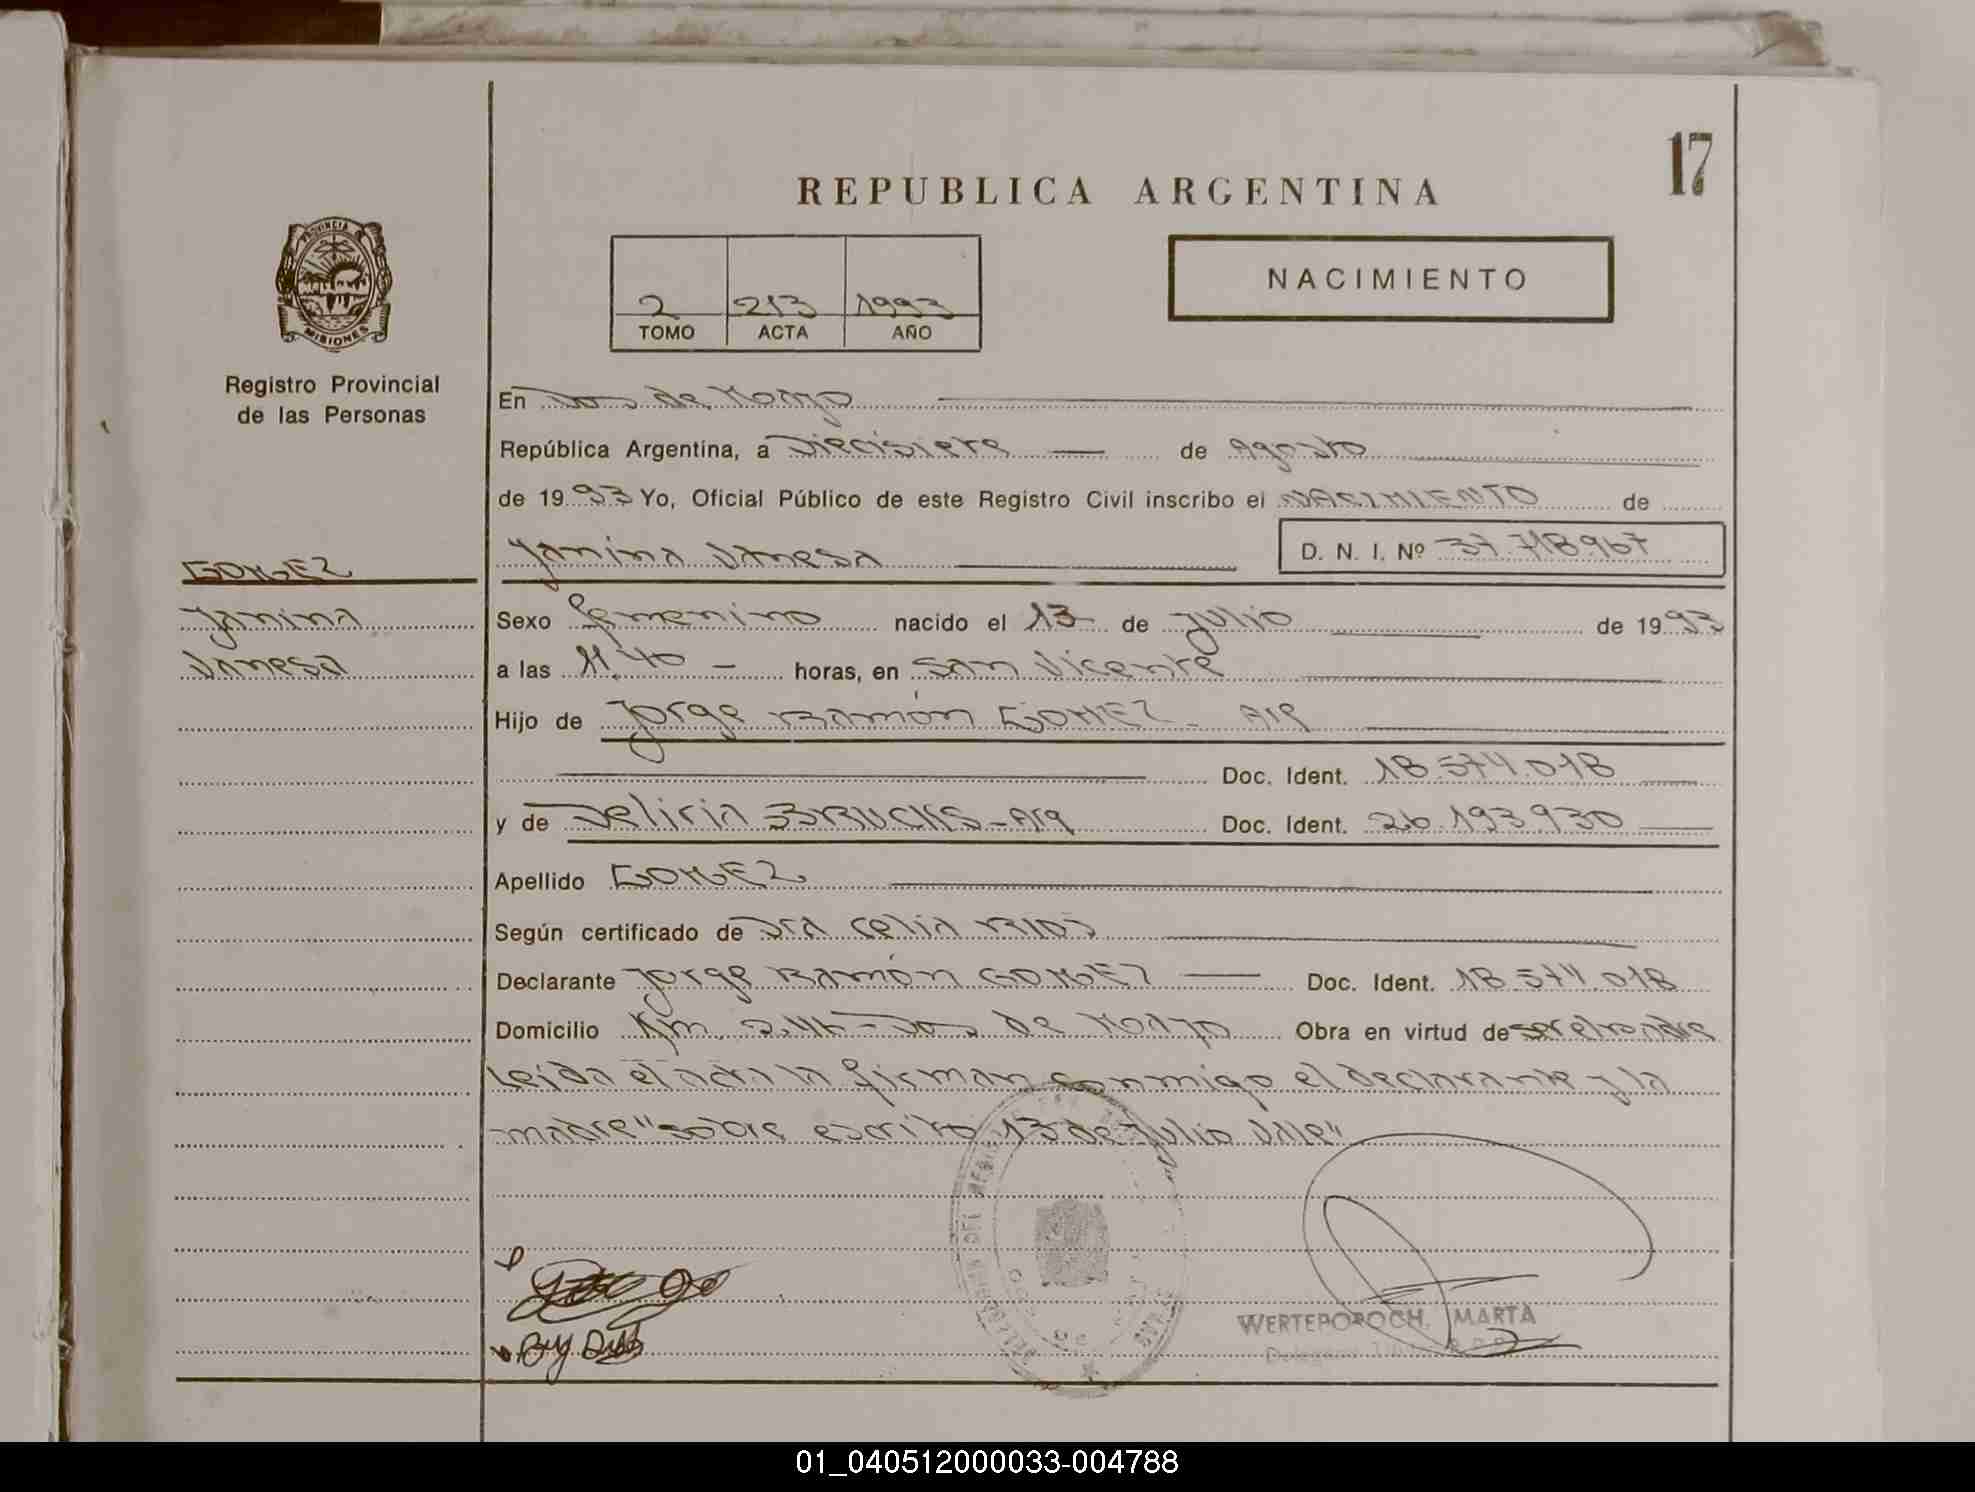 17
REPUBLICA ARGENTINA
PROVINCIA
MISIONES
Registro Provincial
de las Personas
NACIMIENTO
2 213 1993
TOMO ACTA AÑO
En Dos de Mayo
República Argentina, a Diecisiete de Agosto
de 1993 Yo, Oficial Público de este Registro Civil inscribo el NACIMIENTO de
GOMEZ
Yanina Vanesa D. N. I. Nº 37.718967
Yanina
Vanesa
Sexo femenino nacido el 13 de Julio de 1993
a las 11.40 - horas, en San Vicente
Hijo de Jorge Ramón GOMEZ - Arg
Doc. Ident. 18.574.018
y de Deliria BRUCKS - Arg Doc. Ident. 26.193930
Apellido GOMEZ
Según certificado de Dra Celia RIOS
Declarante Jorge Ramón GOMEZ Doc. Ident. 18.574.018
Domicilio Km. - Dos de Mayo Obra en virtud de ser el padre
Leida el acta la firman conmigo el declarante y la
madre "sobre escrito 13 de Julio Vale"
WERTEPOROCH, MARTA
01_040512000033-004788